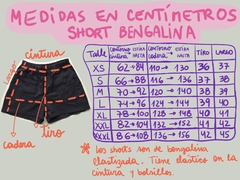 MEDIDAS EN CENTÍMETROS
SHORT BENGALINA
cintura
cadera
tiro
Talle contorno cintura ESTIRA HASTA contorno cadera ESTIRA HASTA TIRO LARGO
XS 62→84 110→130 36 37
S 66→88 116→136 37 38
M 70→92 120→140 38 39
L 74→96 124→144 39 40
XL 78→100 128→148 40 41
XXL 82→104 132→152 41 42
XXXL 86→108 136→156 42 45
* Los shorts son de bengalina
elastizada. Tiene elastico en la
cintura y bolsillos.